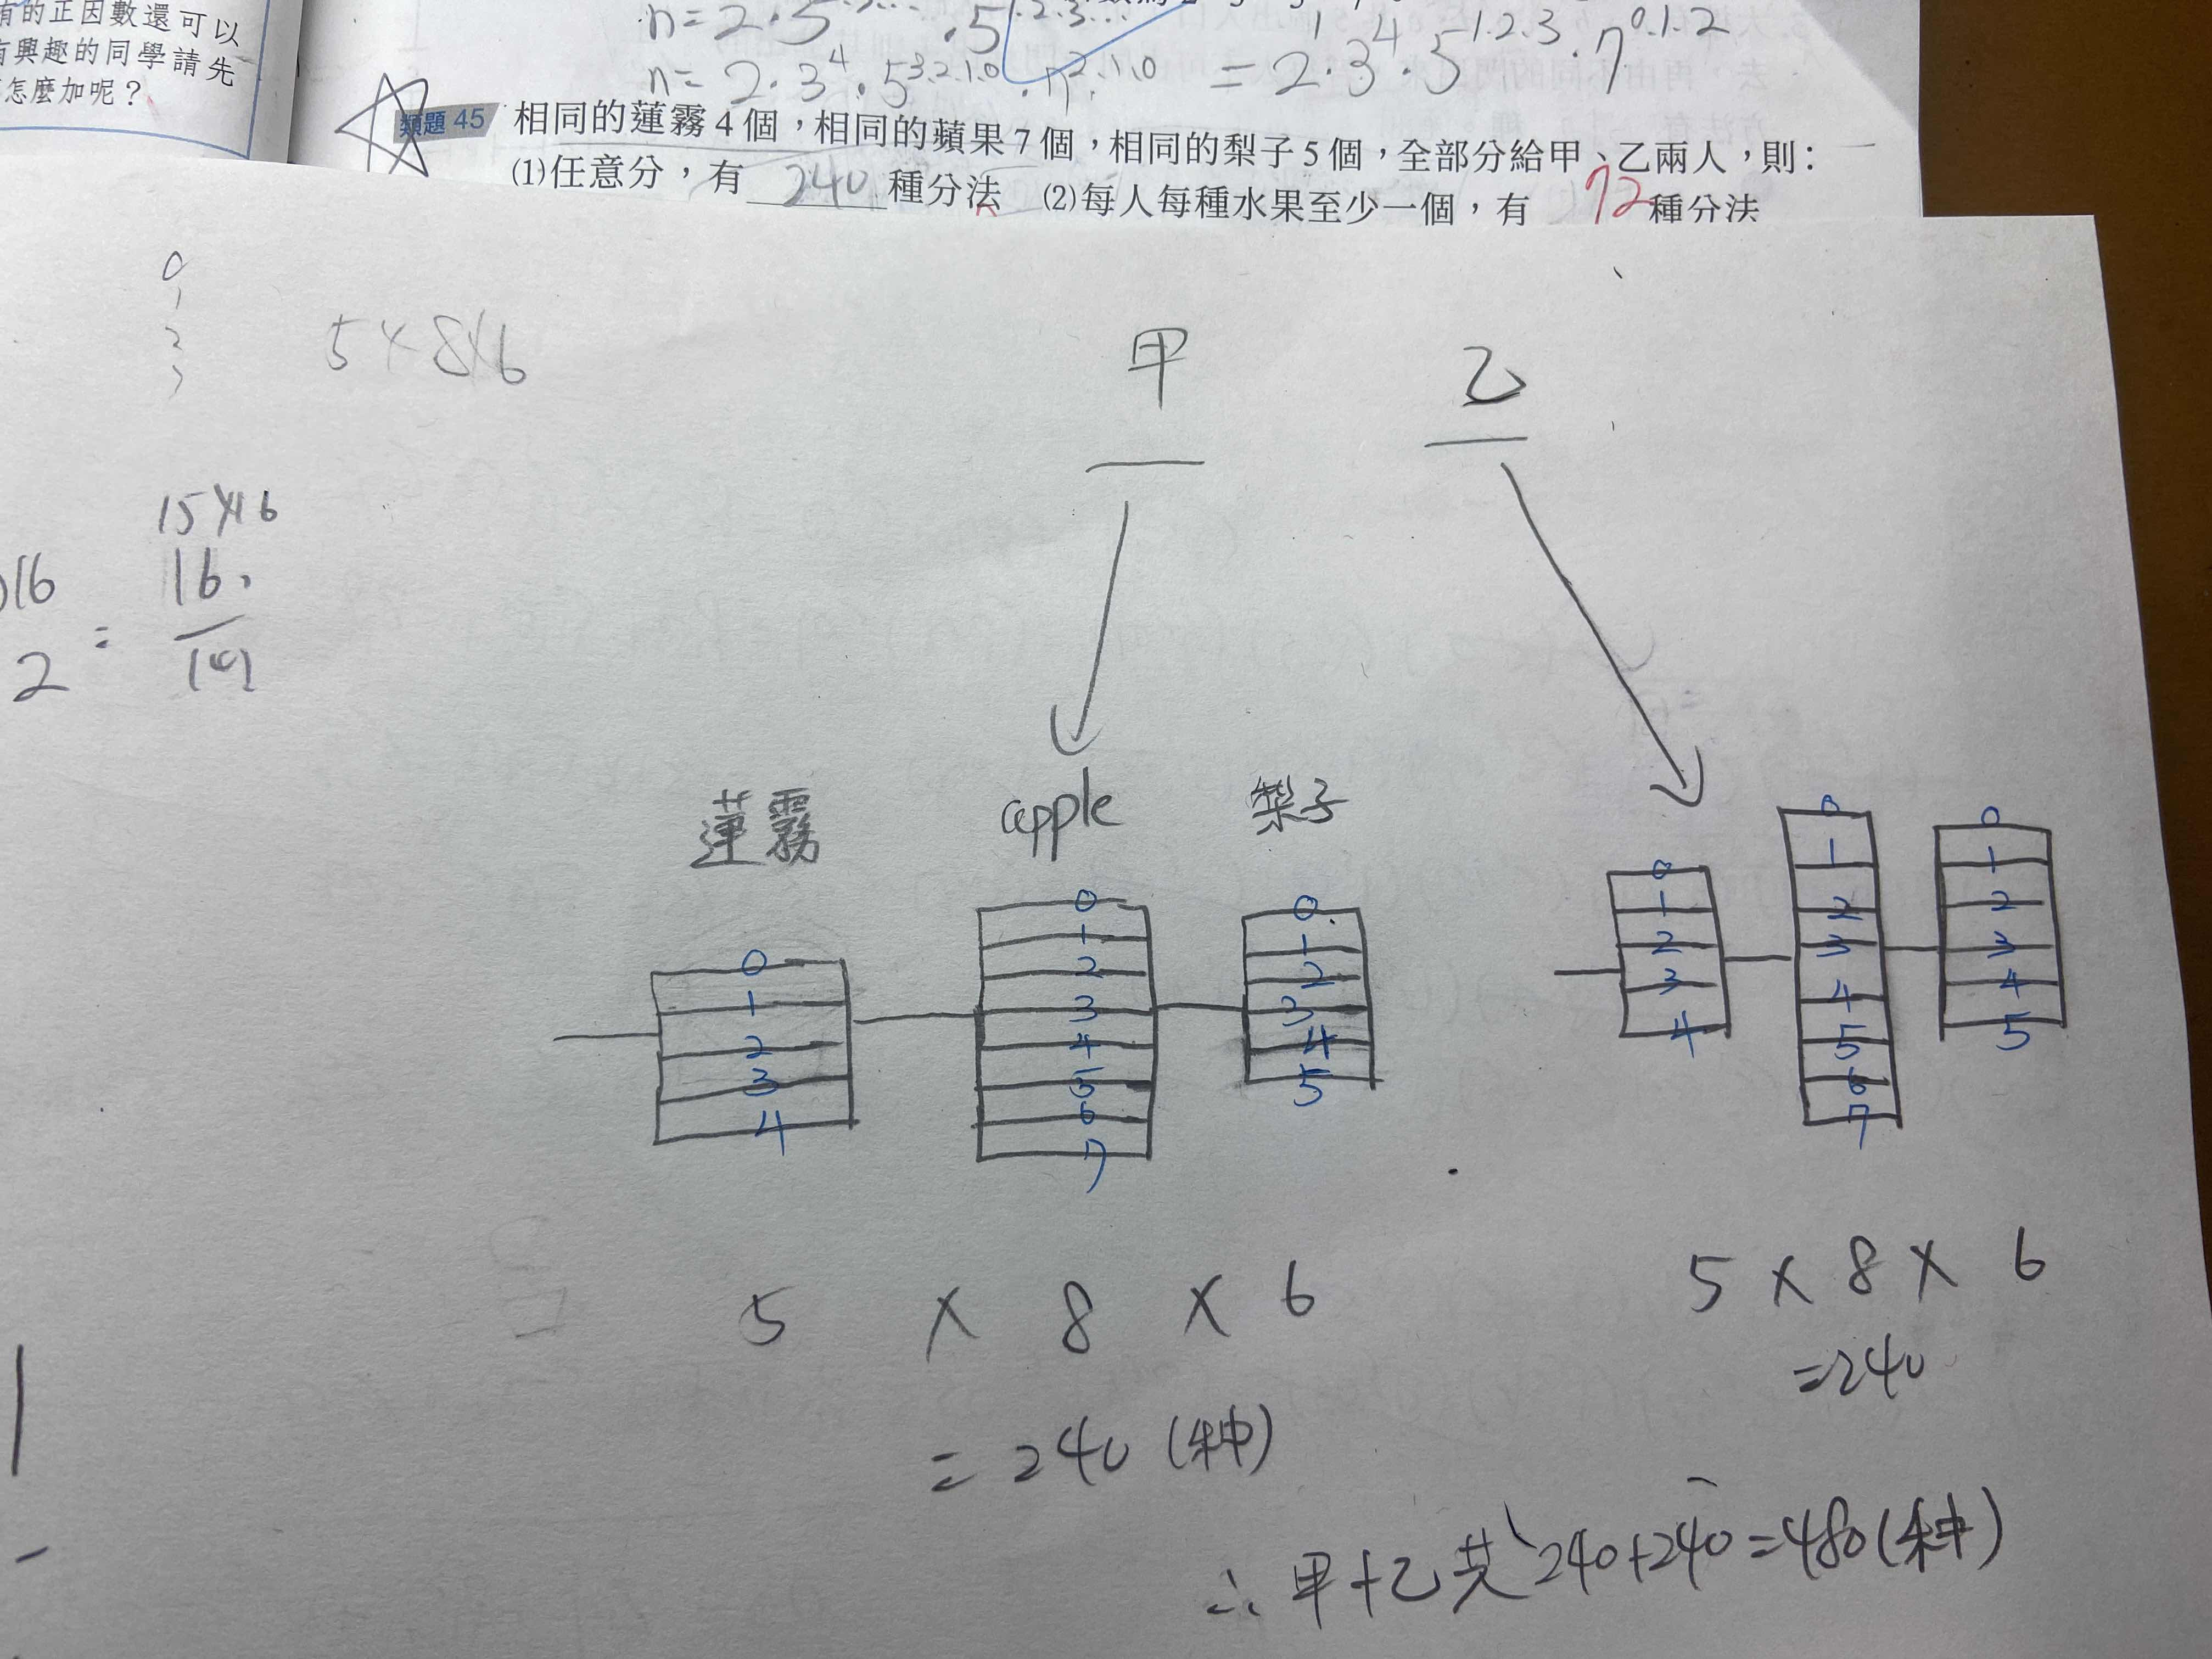 有的正因數還可以
有興趣的同學請先
怎麼加呢？
n=2·3⁴·5³·²·¹·⁰·7²·¹·⁰ = 2¹·3⁴·5¹·²·³·7⁰·¹·²
類題 45 相同的蓮霧4個，相同的蘋果7個，相同的梨子5個，全部分給甲、乙兩人，則：
⑴任意分，有 240 種分法 ⑵每人每種水果至少一個，有 72 種分法
0
1
2
5×8×6
甲 乙
15×16
16
2
=
16.
蓮霧 apple 梨子
0
1
2
3
4
0
1
2
3
4
5
6
7
0
1
2
3
4
5
0
1
2
3
4
0
1
2
3
4
5
6
7
0
1
2
3
4
5
5 × 8 × 6
= 240 (种)
5 × 8 × 6
=240
∴ 甲+乙共240+240=480(种)